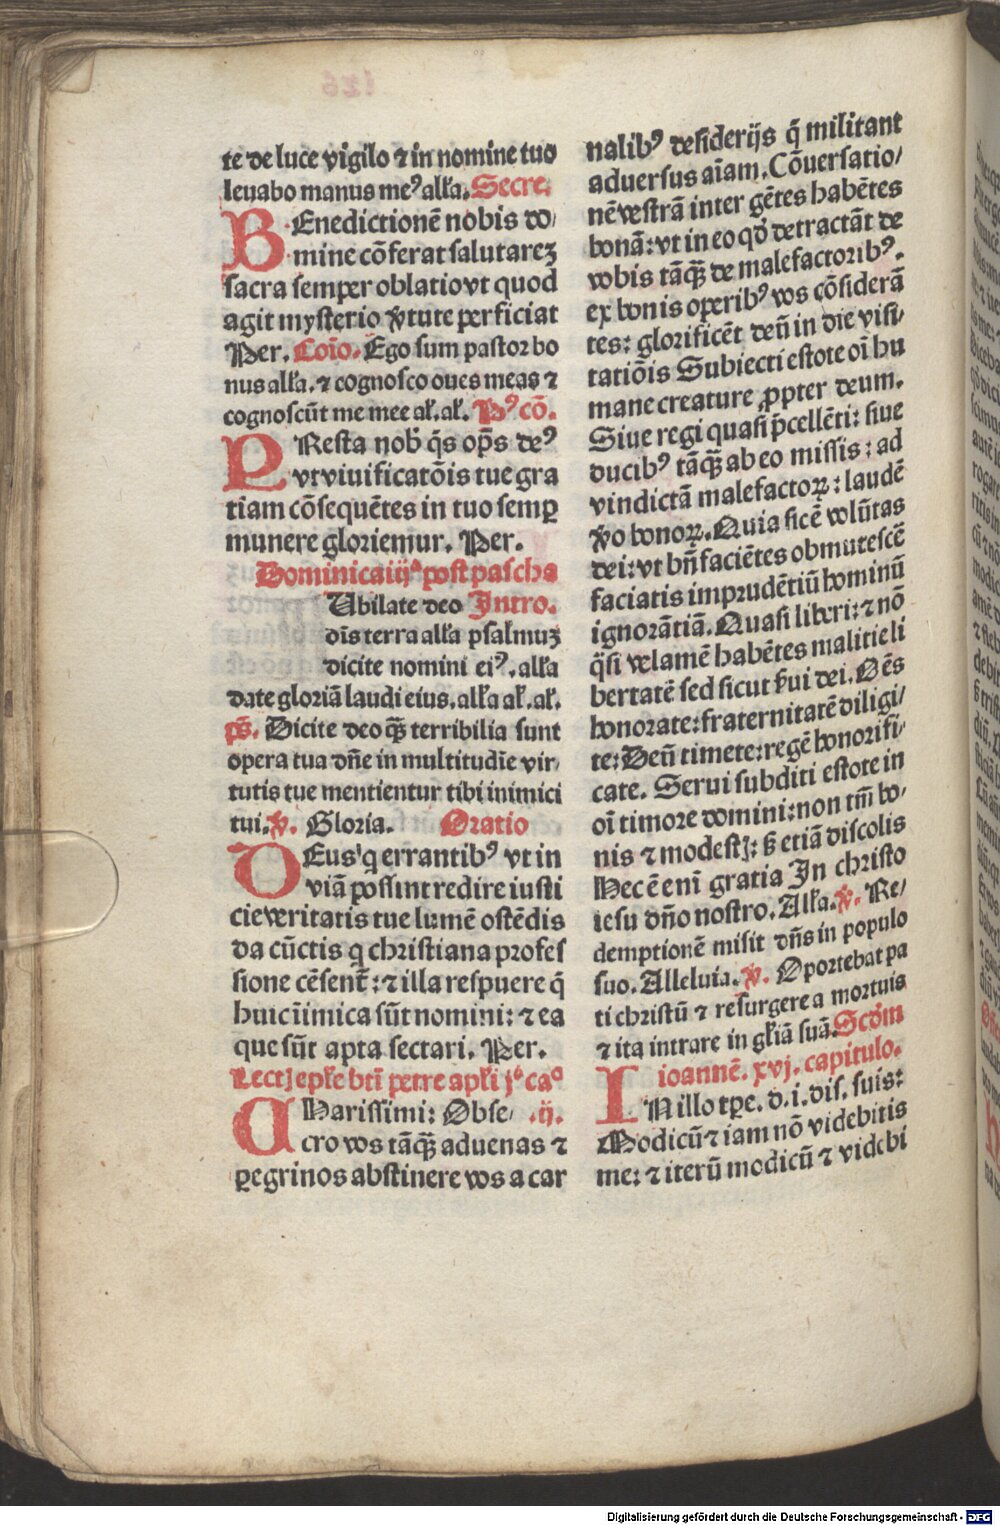 te de luce vigilo ⁊ in nomine tuo
leuabo manus meꝰ alła. Secre.
BEnedictionē nobis do⸗
mine cōferat salutareꝫ
sacra semper oblatio vt quod
agit mysterio v̾tute perficiat
Per. Coīo. Ego sum pastor bo
nus alła. ⁊ cognosco oues meas ⁊
cognoscūt me mee ał. ał. Pꝰ cō.
PResta nob̾ q̄s op̄s deꝰ
vt viuificatōis tue gra
tiam cōsequētes in tuo semꝑ
munere gloriemur. Per.
Dominica iijª post pascha
Vbilate deo Intro.
oīs terra alła psalmuꝫ
dicite nomini eiꝰ. alła
date gloriā laudi eius. alła ał. ał.
ps̄. Dicite deo q̄ꝫ terribilia sunt
opera tua dn̄e in multitudīe vir⸗
tutis tue mentientur tibi inimici
tui. v̾. Gloria. Oratio
DEus q̇ errantibꝰ vt in
viā possint redire iusti
cie veritatis tue lumē ostēdis
da cūctis q christiana profes
sione cēsent᷑: ⁊ illa respuere q̄
huic īimica sūt nomini: ⁊ ea
que sūt apta sectari. Per.
Lectꝭ epłe btī petre apłi jº caº
CHarissimi: Obse⸗ .ij.
cro vos tāq̄ꝫ aduenas ⁊
ꝑegrinos abstinere vos a car
nalibꝰ desiderijs q̄ militant
aduersus aīam. Cōuersatio⸗
nē vestrā inter gētes habētes
bonā: vt in eo qd̾ detractāt de
vobis tāq̄ꝫ de malefactoribꝰ.
ex bonis operibꝰ vos cōsiderā
tes: glorificēt deū in die visi⸗
tatiōis Subiecti estote oī hu
mane creature ꝓpter deum.
Siue regi quasi p̄cellēti: siue
ducibꝰ tāq̄ꝫ ab eo missis: ad
vindictā malefactoꝝ: laudē
v̾o bonoꝝ. Quia sic ē volūtas
dei: vt bn̄ faciētes obmutescē
faciatis imprudētiū hominū
ignorātiā. Quasi liberi: ⁊ nō
q̄si velamē habētes malitie li
bertatē sed sicut ẜui dei. Oēs
honorate: fraternitatē diligi⸗
te: Deū timete: regē honorifi⸗
cate. Serui subditi estote in
oī timore domini: non tm̄ bo⸗
nis ⁊ modestꝭ: ẜ etiā discolis
Hec ē enī gratia In christo
iesu dn̄o nostro. Alła. v̾. Re⸗
demptionē misit dn̄s in populo
suo. Alleluia. v̾. Oportebat pa
ti christū ⁊ resurgere a mortuis
⁊ ita intrare in głiā suā. Scd̾m
ioannē. xvj. capitulo.
IN illo tꝑe. d. i. dis. suis:
Modicū ⁊ iam nō videbitis
me: ⁊ iterū modicū ⁊ videbi
Digitalisierung gefördert durch die Deutsche Forschungsgemeinschaft - DFG